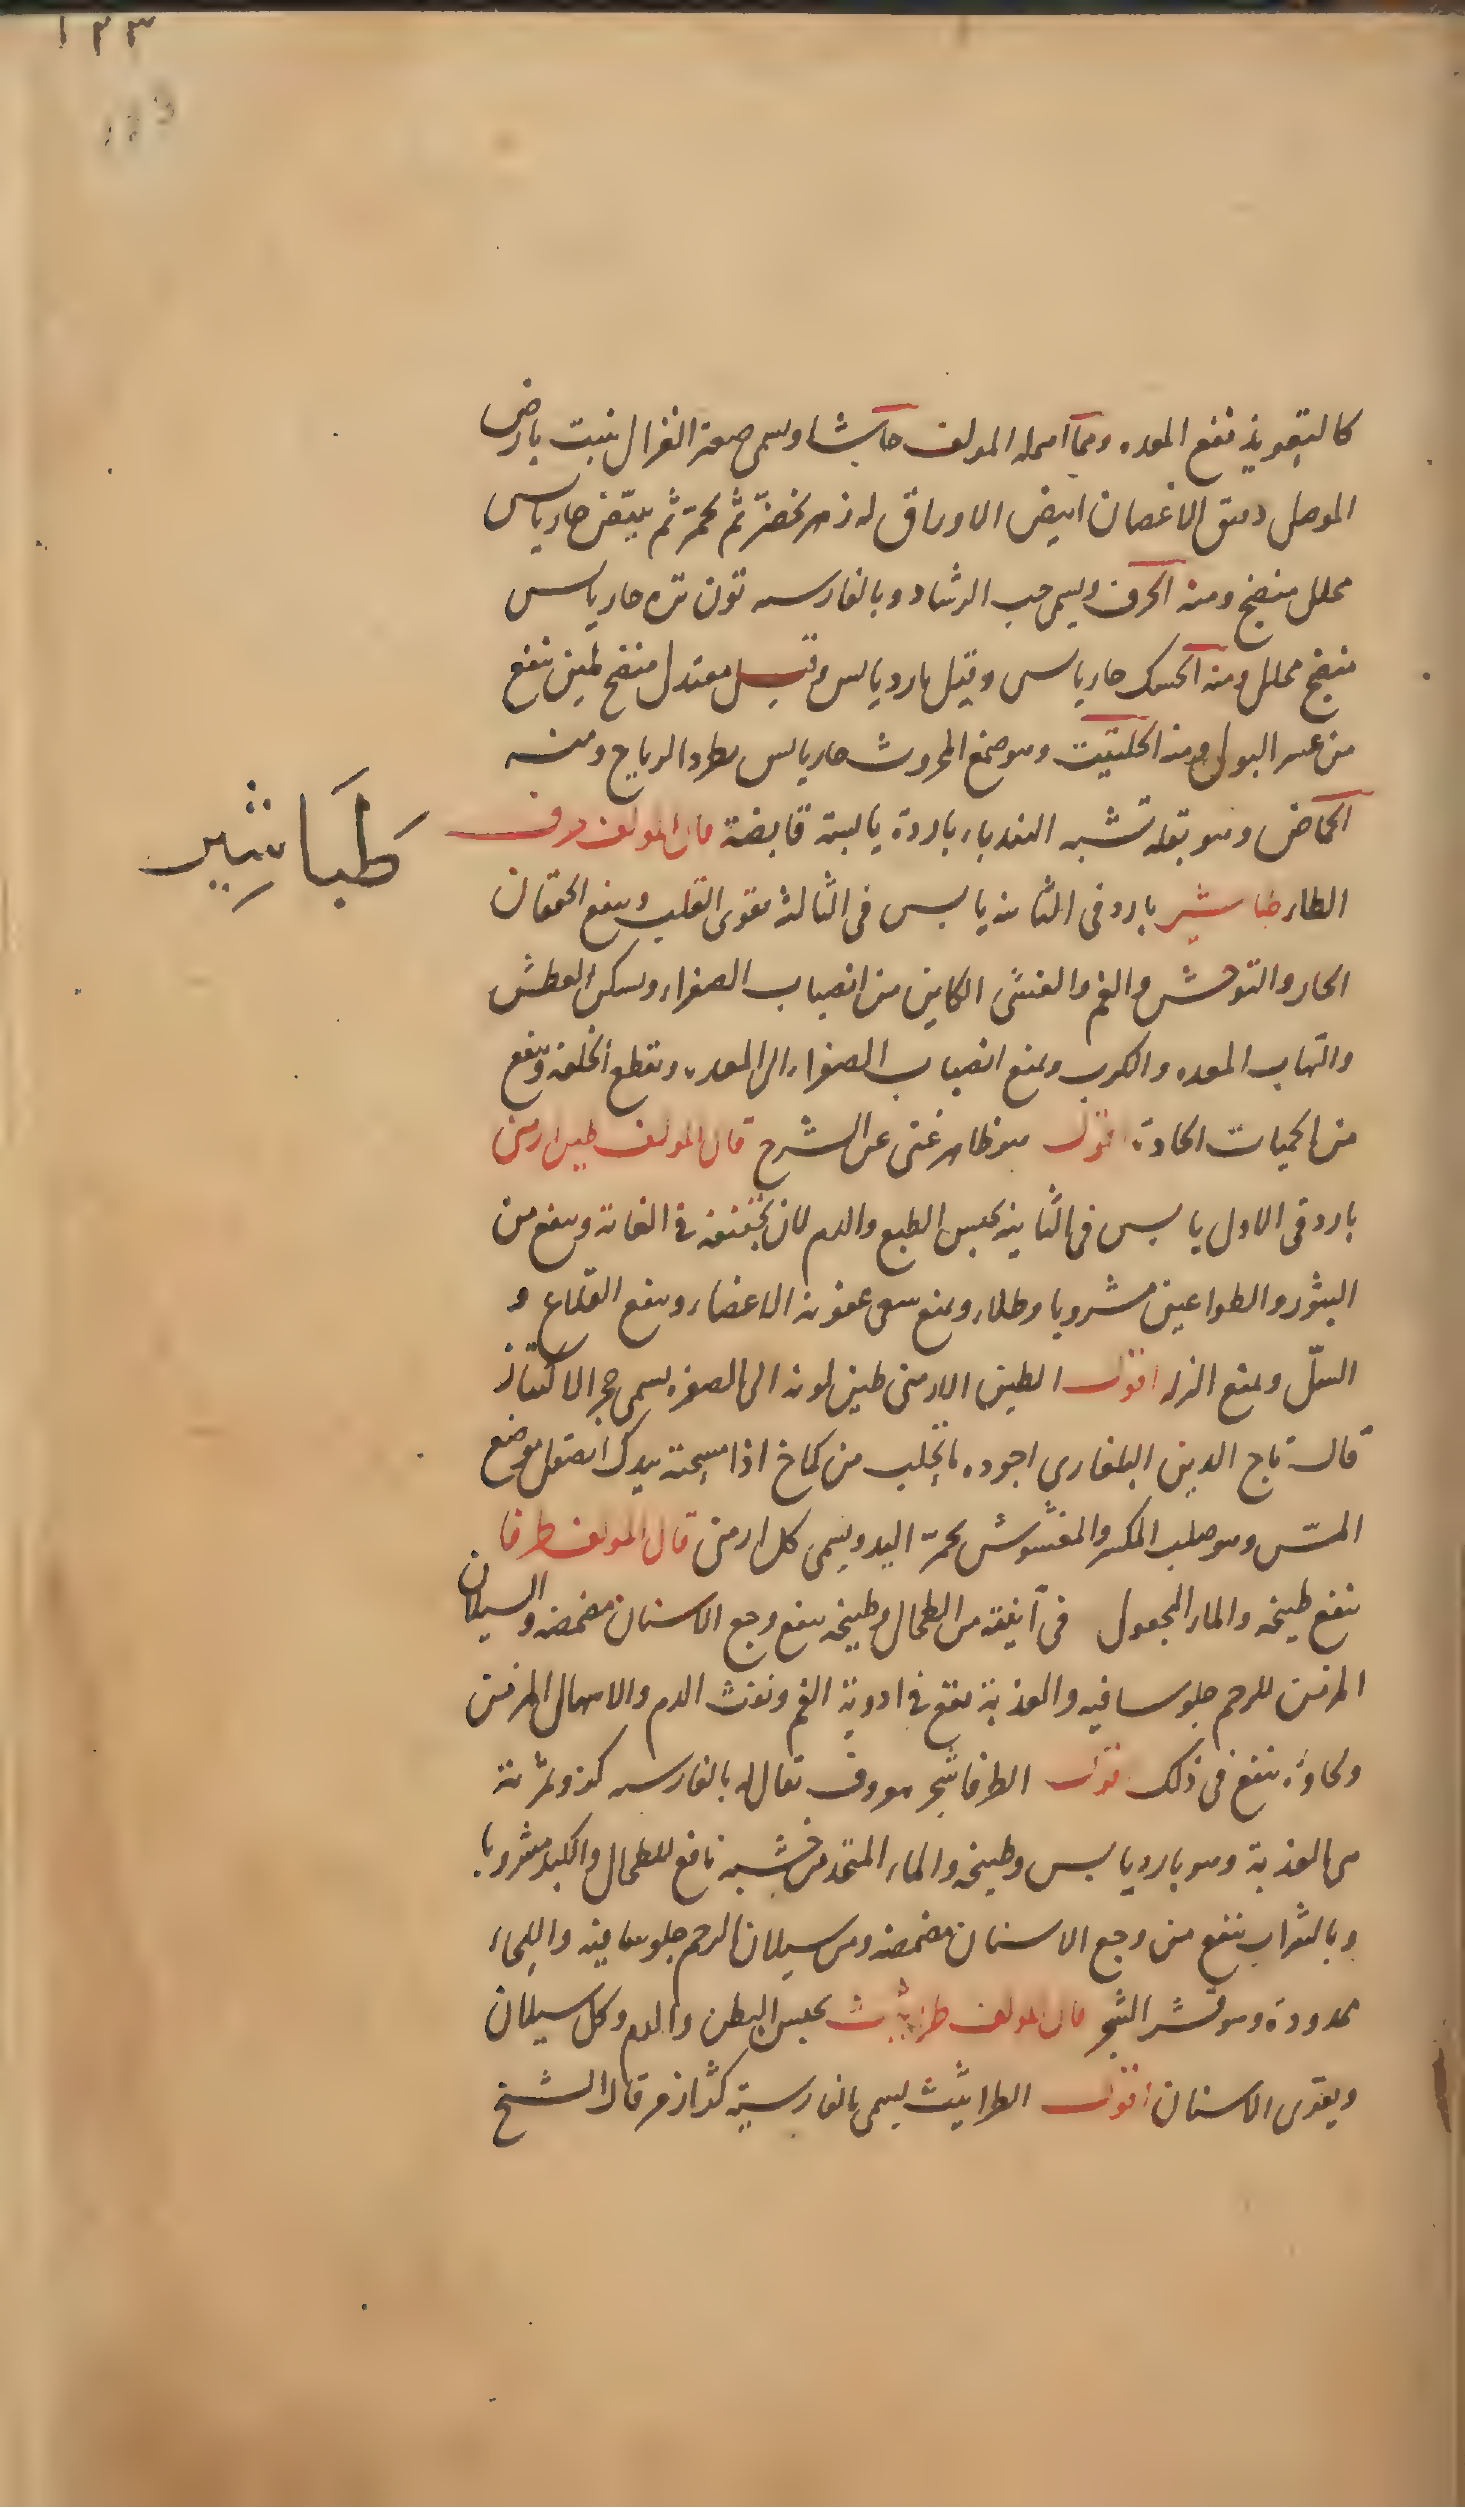 ١٢٣
كالتعويذ ينفع المعده ومما اهمله المولف حاشا ويسمى صعتر الغزال ينبت بارض
الموصل دقيق الاغصان ابيض الاوراق له زهر يخضرّ ثم يحمرّ ثم يبيّض حار يابس
محلل منضج ومنه الحرف ويسمى حب الرشاد وبالفارسيه تره حار يابس
منضج محلل ومنه الحسك حار يابس وقيل بارد يابس وقيل معتدل منضج ملين ينفع
من عسر البول ومنه الحلتيت وهو صمغ المحروث حار يابس يطرد الرياح ومنه
الحماض وهو بقلة تشبه الهندباء باردة يابسة قابضة قال المولف حرف
الطاء طباشير بارد فى الثانيه يابس فى الثالثه يقوى القلب وينفع الخفقان
الحار والتوحش والغم والغشى الكاين من انصباب الصفراء ويسكن العطش
والتهاب المعده والكرب ويمنع انصباب الصفراء الى المعده ويقطع الخلفه وينفع
من الحميات الحادة اقول هو ظاهر غنى عن الشرح قال المولف طين ارمنى
بارد فى الاول يابس فى الثانيه يحبس الطبع والدم لان تجفيفه فى الغاية وينفع من
البثور والطواعين مشروبا وطلاء ويمنع سعى عفونة الاعضاء وينفع القلاع و
السّل ويمنع النزله اقول الطين الارمنى طين لونه الى الصفره يسمى حجر
قال تاج الدين البلغارى اجوده ما يجلب من كماخ اذا مسحته بيدك انصقل موضع
المسّ وهو صلب المكسر والمغشوش يحمرّ اليد ويسمى كل ارمنى قال المولف طرفا
ينفع طبيخه والماء المجعول فى آنيته من الطحال وطبيخه ينفع وجع الاسنان مضمضه والسيلان
المزمن للرحم جلوسا فيه والعذبة تقع فى ادوية الفم ونفث الدم والاسهال المزمن
ولحاؤه ينفع فى ذلك اقول الطرفا شجر معروف يقال له بالفارسيه كز وثمرته
هى العذبة وهو بارد يابس وطبيخه والماء المتخذ من خشبه نافع للطحال والكبد مشروبا
وبالشراب ينفع من وجع الاسنان مضمضه ومن سيلان الرحم جلوسا فيه واللحاء
ممدودة وهو قشر الشجر قال المولف طراثيث يحبس البطن والدم وكل سيلان
ويقوى الاسنان اقول الطراثيث يسمى بالفارسيّة قال الشيخ
طَبَاشِير